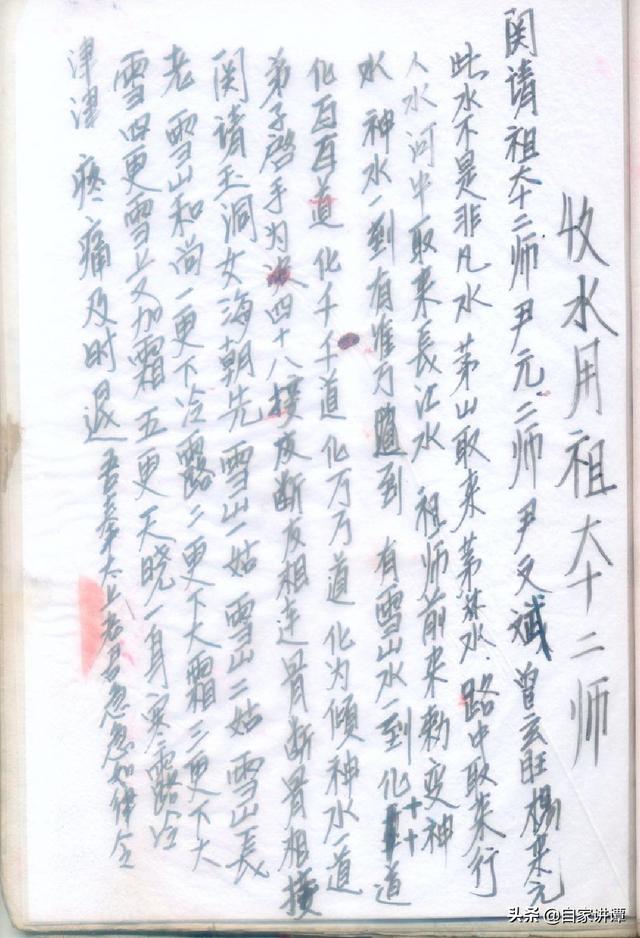 收水用祖本十二师
関请祖本十二师尹元二师尹文斌曾玄旺楊来元
此水不是非凡水茅山取来第茶水路中取来行
人水河中取来長江水祖师前来勅变神
水神水一到有准万随到有雪山水一到化十十道
化百百道化千千道化万万道化为傾神水一道
弟子啓手为决四十八接皮断皮相连骨断骨相接
関请玉洞女海朝先雪山一姑雪山二姑雪山長
老雪山和尚一更下冷露二更下大霜三更下大
雪四更雪上又加霜五更天晓一身寒露冷
津津疼痛及时退吾奉太上老君急急如律令
头条@自家讲谭